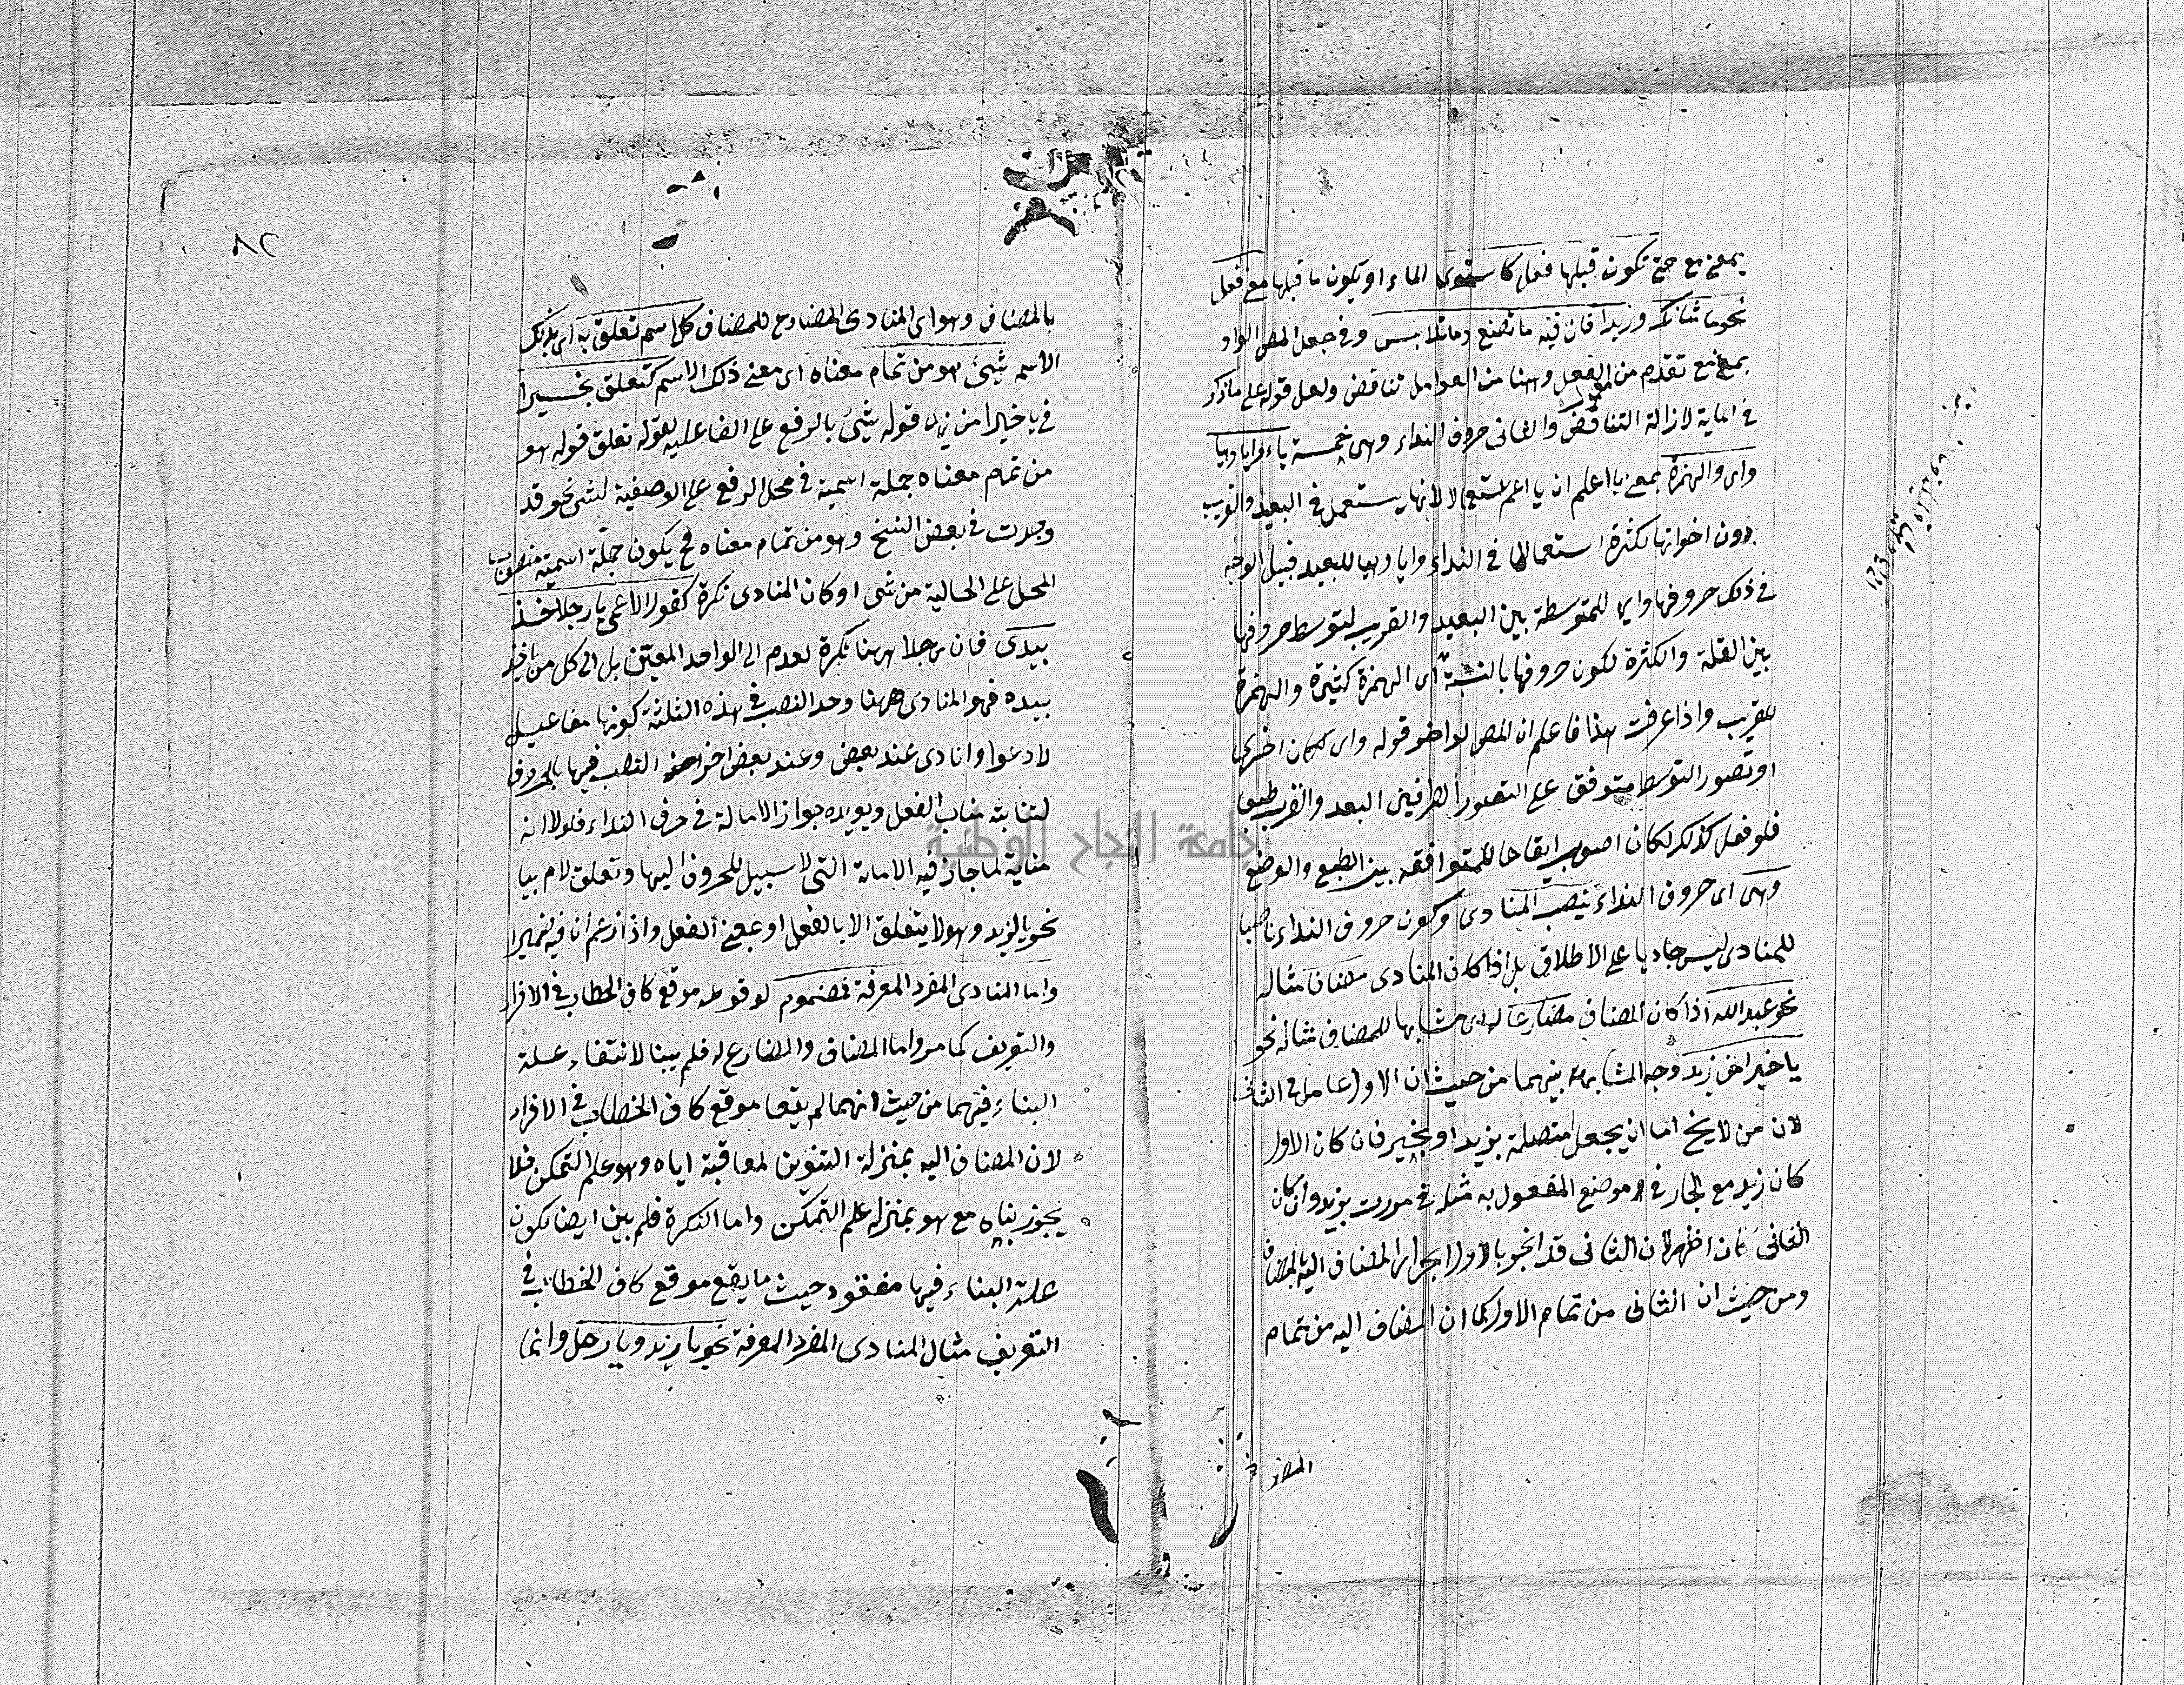 بمعنى مع حتى تكون قبلها فعل كاستوى الماء او يكون ما قبلها معنى فعل
نحو ما شانك وزيدا فان فيه ما تصنع وما تلابس وفى جعل المص الواو
بمعنى مع تقدم من الفعل وههنا من العوامل تناقض ولعل قوله على ما ذكر
فى لازالة التناقض والثانى حروف النداء وهى خمسة ياء وايا وهيا
واى والهمزة بمعنى يا اعلم ان يا اعم لانها يستعمل فى البعيد والقريب
دون اخواتها لكثرة استعمال فى النداء وايا وهيا للبعيد قيل الوجه
فى ذلك حروفها وايها للمتوسطة بين البعيد والقريب لتوسط حروفها
بين القلة والكثرة لكون حروفها بالنسبة الى الهمزة كثيرة والهمزة
للقريب واذا عرفت هذا فاعلم ان المص لو اخر قوله واى لكان احرى
او تصور التوسط متوقف على التصور الطرفين البعد والقرب طبعا
فلو فعل كذلك لكان اصوب ايقاحا للمتوافقه بين الطبع والوضع
وهى اى حروف النداء ينصب المنادى وكون حروف النداء ناصبا
للمنادى ليس جاديا على الاطلاق بل اذا كان المنادى مضاف مثاله
نحو عبد الله اذا كان المضاف مضارعا له اى مشابها للمضاف مثاله نحو
يا خيرا من زيد وجه المشابهة بينهما من حيث ان الاول عامل فى الثانى
لان من لا يخ اما ان يجعل متصلة بزيد او بخير فان كان الاول
كان زيد مع الجار فى موضع المفعول به مثله فى مررت بزيد وان كان
الثانى كان اظهر لان الثانى قد انجر بالاول انجرار المضاف اليه بالمضاف
ومن حيث ان الثانى من تمام الاول كما ان المضاف اليه من تمام
المضاف
٨٢
بالمضاف وهو اى المنادى المضارع للمضاف كل اسم تعلق به اى بذلك
الاسم شئ هو من تمام معناه اى معنى ذلك الاسم كتعلق بخيرا
فى يا خيرا من زيد قوله شئ بالرفع على الفاعلية لقوله تعلق قوله هو
من تمام معناه جملة اسمية فى محل الرفع على الوصفية لشى نحو قد
وجدت فى بعض النسخ وهو من تمام معناه فح يكون جملة اسمية منصوب
المحل على الحالية من شى او كان المنادى نكرة كقول الاعمى يا رجلا خذ
بيدى فان رجلا ههنا نكرة لعدم الى الواحد المعين بل الى كل من ياخذ
بيده فهو المنادى ههنا وحد النصب فى هذه الثلثة كونها مفاعيل
لادعوا وانادى عند بعض وعند بعض اخر النصب فيها بالحروف
لنيابته مناب الفعل ويويده جواز الامالة فى حرف النداء فلولا انه
منابه لما جاز فيه الامالة التى لا سبيل للحروف اليها وتعلق لام بيا
نحو يا لزيد وهو لا يتعلق الا بالفعل او بمعنى الفعل واذا زعم ان فيه ضميرا
واما المنادى المفرد المعرفة فمضموم لوقوعه موقع كاف الخطاب فى الافراد
والتعريف كما مر واما المضاف والمضارع له فلم يبنا لانتفاء علة
البناء فيهما من حيث انهما لم يقعا موقع كاف الخطاب فى الافراد
لان المضاف اليه بمنزلة التنوين لمعاقبة اياه وهو علم التمكن فلا
يجوز بناه مع هو بمنزله علم التمكن واما النكرة فلم يبن ايضا لكون
علة البناء فيها مفقود حيث ما يقع موقع كاف الخطاب فى
التعريف مثال المنادى المفرد المعرفة نحو يا زيد ويا رجل وانما
جامعة النجاح الوطنية